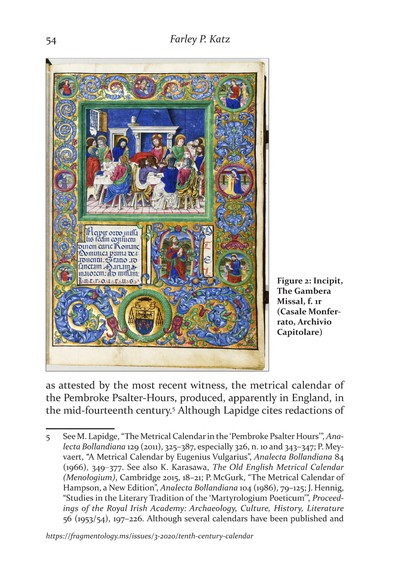 54
Farley P. Katz
Figure 2: Incipit,
The Gambera
Missal, f. 1r
(Casale Monfer-
rato, Archivio
Capitolare)
as attested by the most recent witness, the metrical calendar of
the Pembroke Psalter-Hours, produced, apparently in England, in
the mid-fourteenth century.⁵ Although Lapidge cites redactions of
5 See M. Lapidge, “The Metrical Calendar in the ‘Pembroke Psalter Hours’”, Ana-
lecta Bollandiana 129 (2011), 325–387, especially 326, n. 10 and 343–347; P. Mey-
vaert, “A Metrical Calendar by Eugenius Vulgarius”, Analecta Bollandiana 84
(1966), 349–377. See also K. Karasawa, The Old English Metrical Calendar
(Menologium), Cambridge 2015, 18–21; P. McGurk, “The Metrical Calendar of
Hampson, a New Edition”, Analecta Bollandiana 104 (1986), 79–125; J. Hennig,
“Studies in the Literary Tradition of the ‘Martyrologium Poeticum’”, Proceed-
ings of the Royal Irish Academy: Archaeology, Culture, History, Literature
56 (1953/54), 197–226. Although several calendars have been published and
https://fragmentology.ms/issues/3-2020/tenth-century-calendar